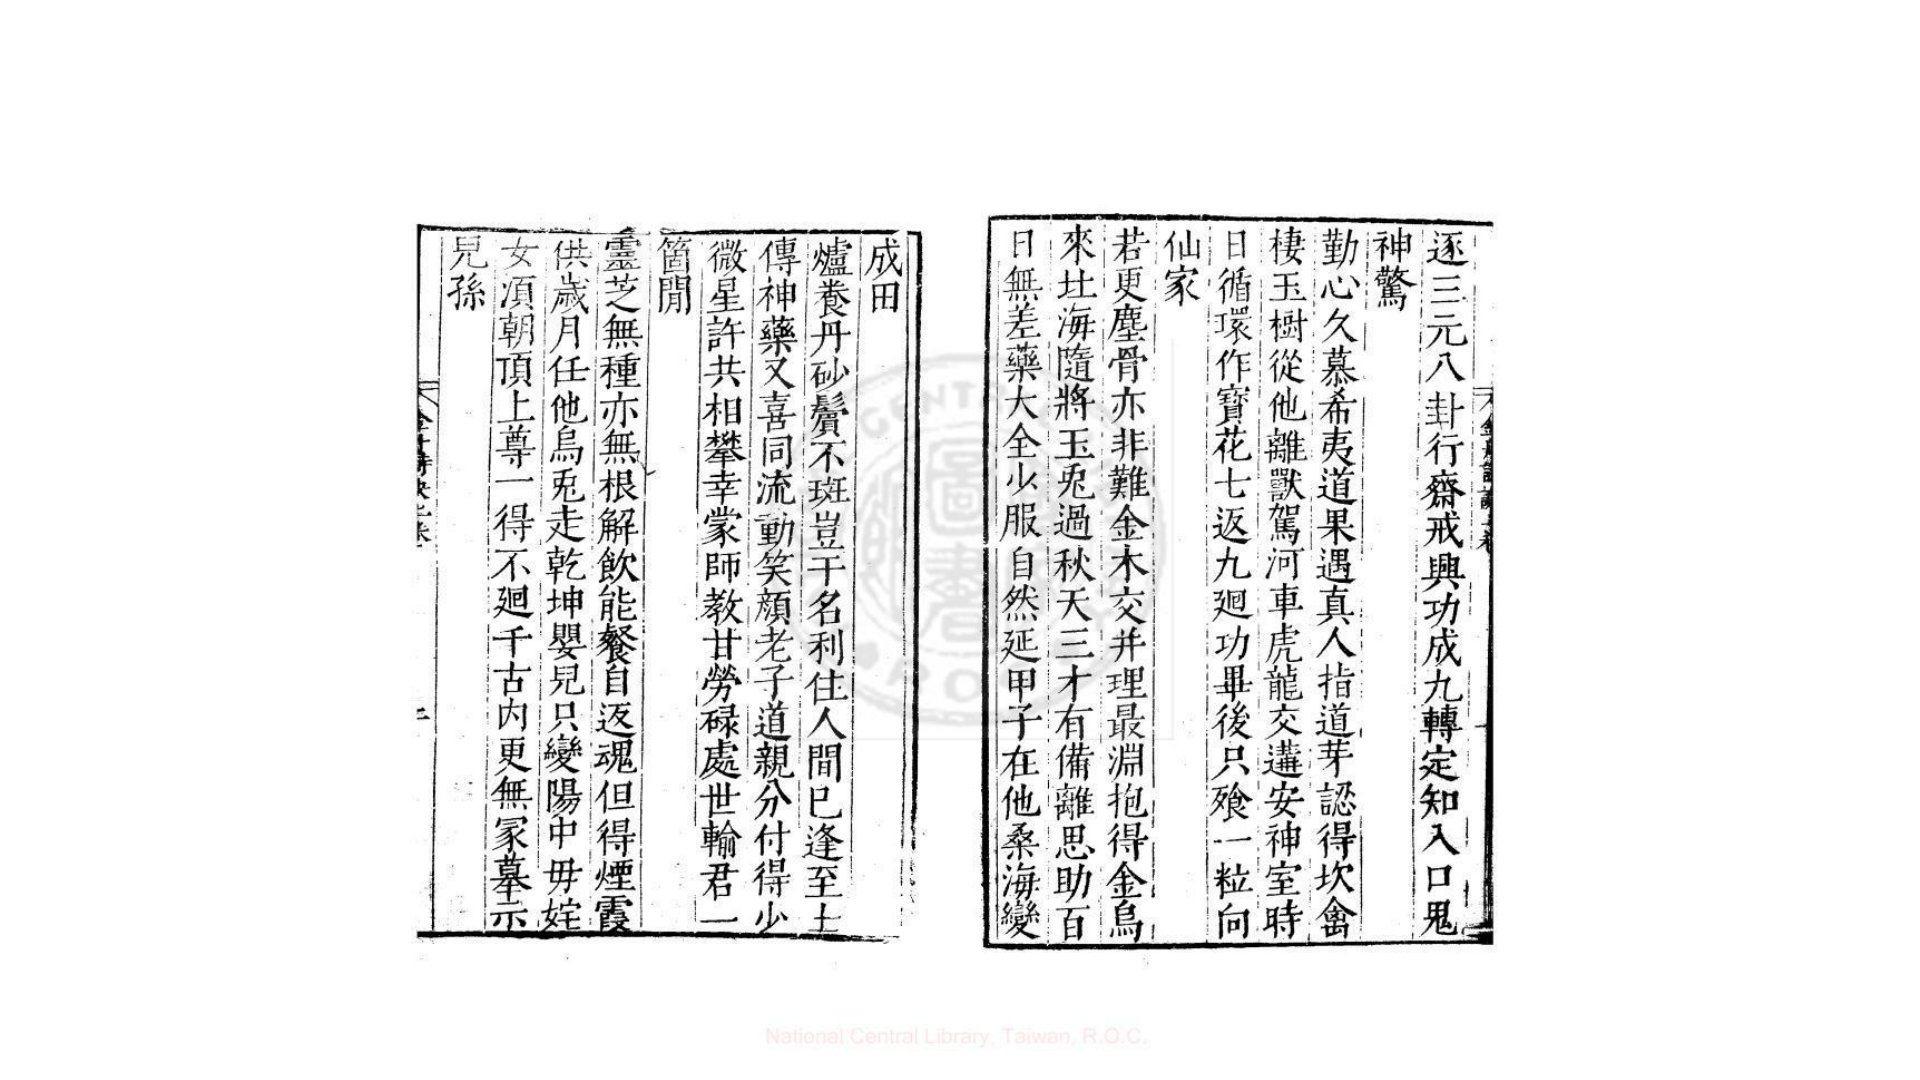 逐三元八卦行齋戒興功成九轉定知入口鬼
神驚
勤心久慕希夷道果遇真人指道芽認得坎禽
棲玉樹從他離獸駕河車虎龍交遘安神室時
日循環作寶花七返九廻功畢後只飱一粒向
仙家
若更塵骨亦非難金木交并理最淵抱得金烏
來北海隨將玉兎過秋天三才有備離思助百
日無差藥大全少服自然延甲子在他桑海變
成田
爐養丹砂鬢不斑豈干名利住人間巳逢至士
傳神藥又喜同流動笑顔老子道親分付得少
微星許共相攀幸蒙師教甘勞碌處世輸君一
箇閒
靈芝無種亦無根解飲能餐自返魂但得煙霞
供歲月任他烏兎走乾坤嬰兒只變陽中母姹
女湏朝頂上尊一得不廻千古内更無冢墓示
兒孫
National Central Library, Taiwan, R.O.C.